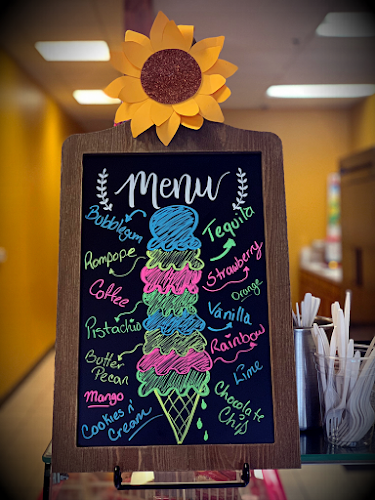 Menu
Bubblegum
Tequila
Rompope
Strawberry
Coffee
Orange
Pistachio
Vanilla
Rainbow
Butter
Pecan
Lime
Mango
Chocolate
Chip
Cookies n'
Cream